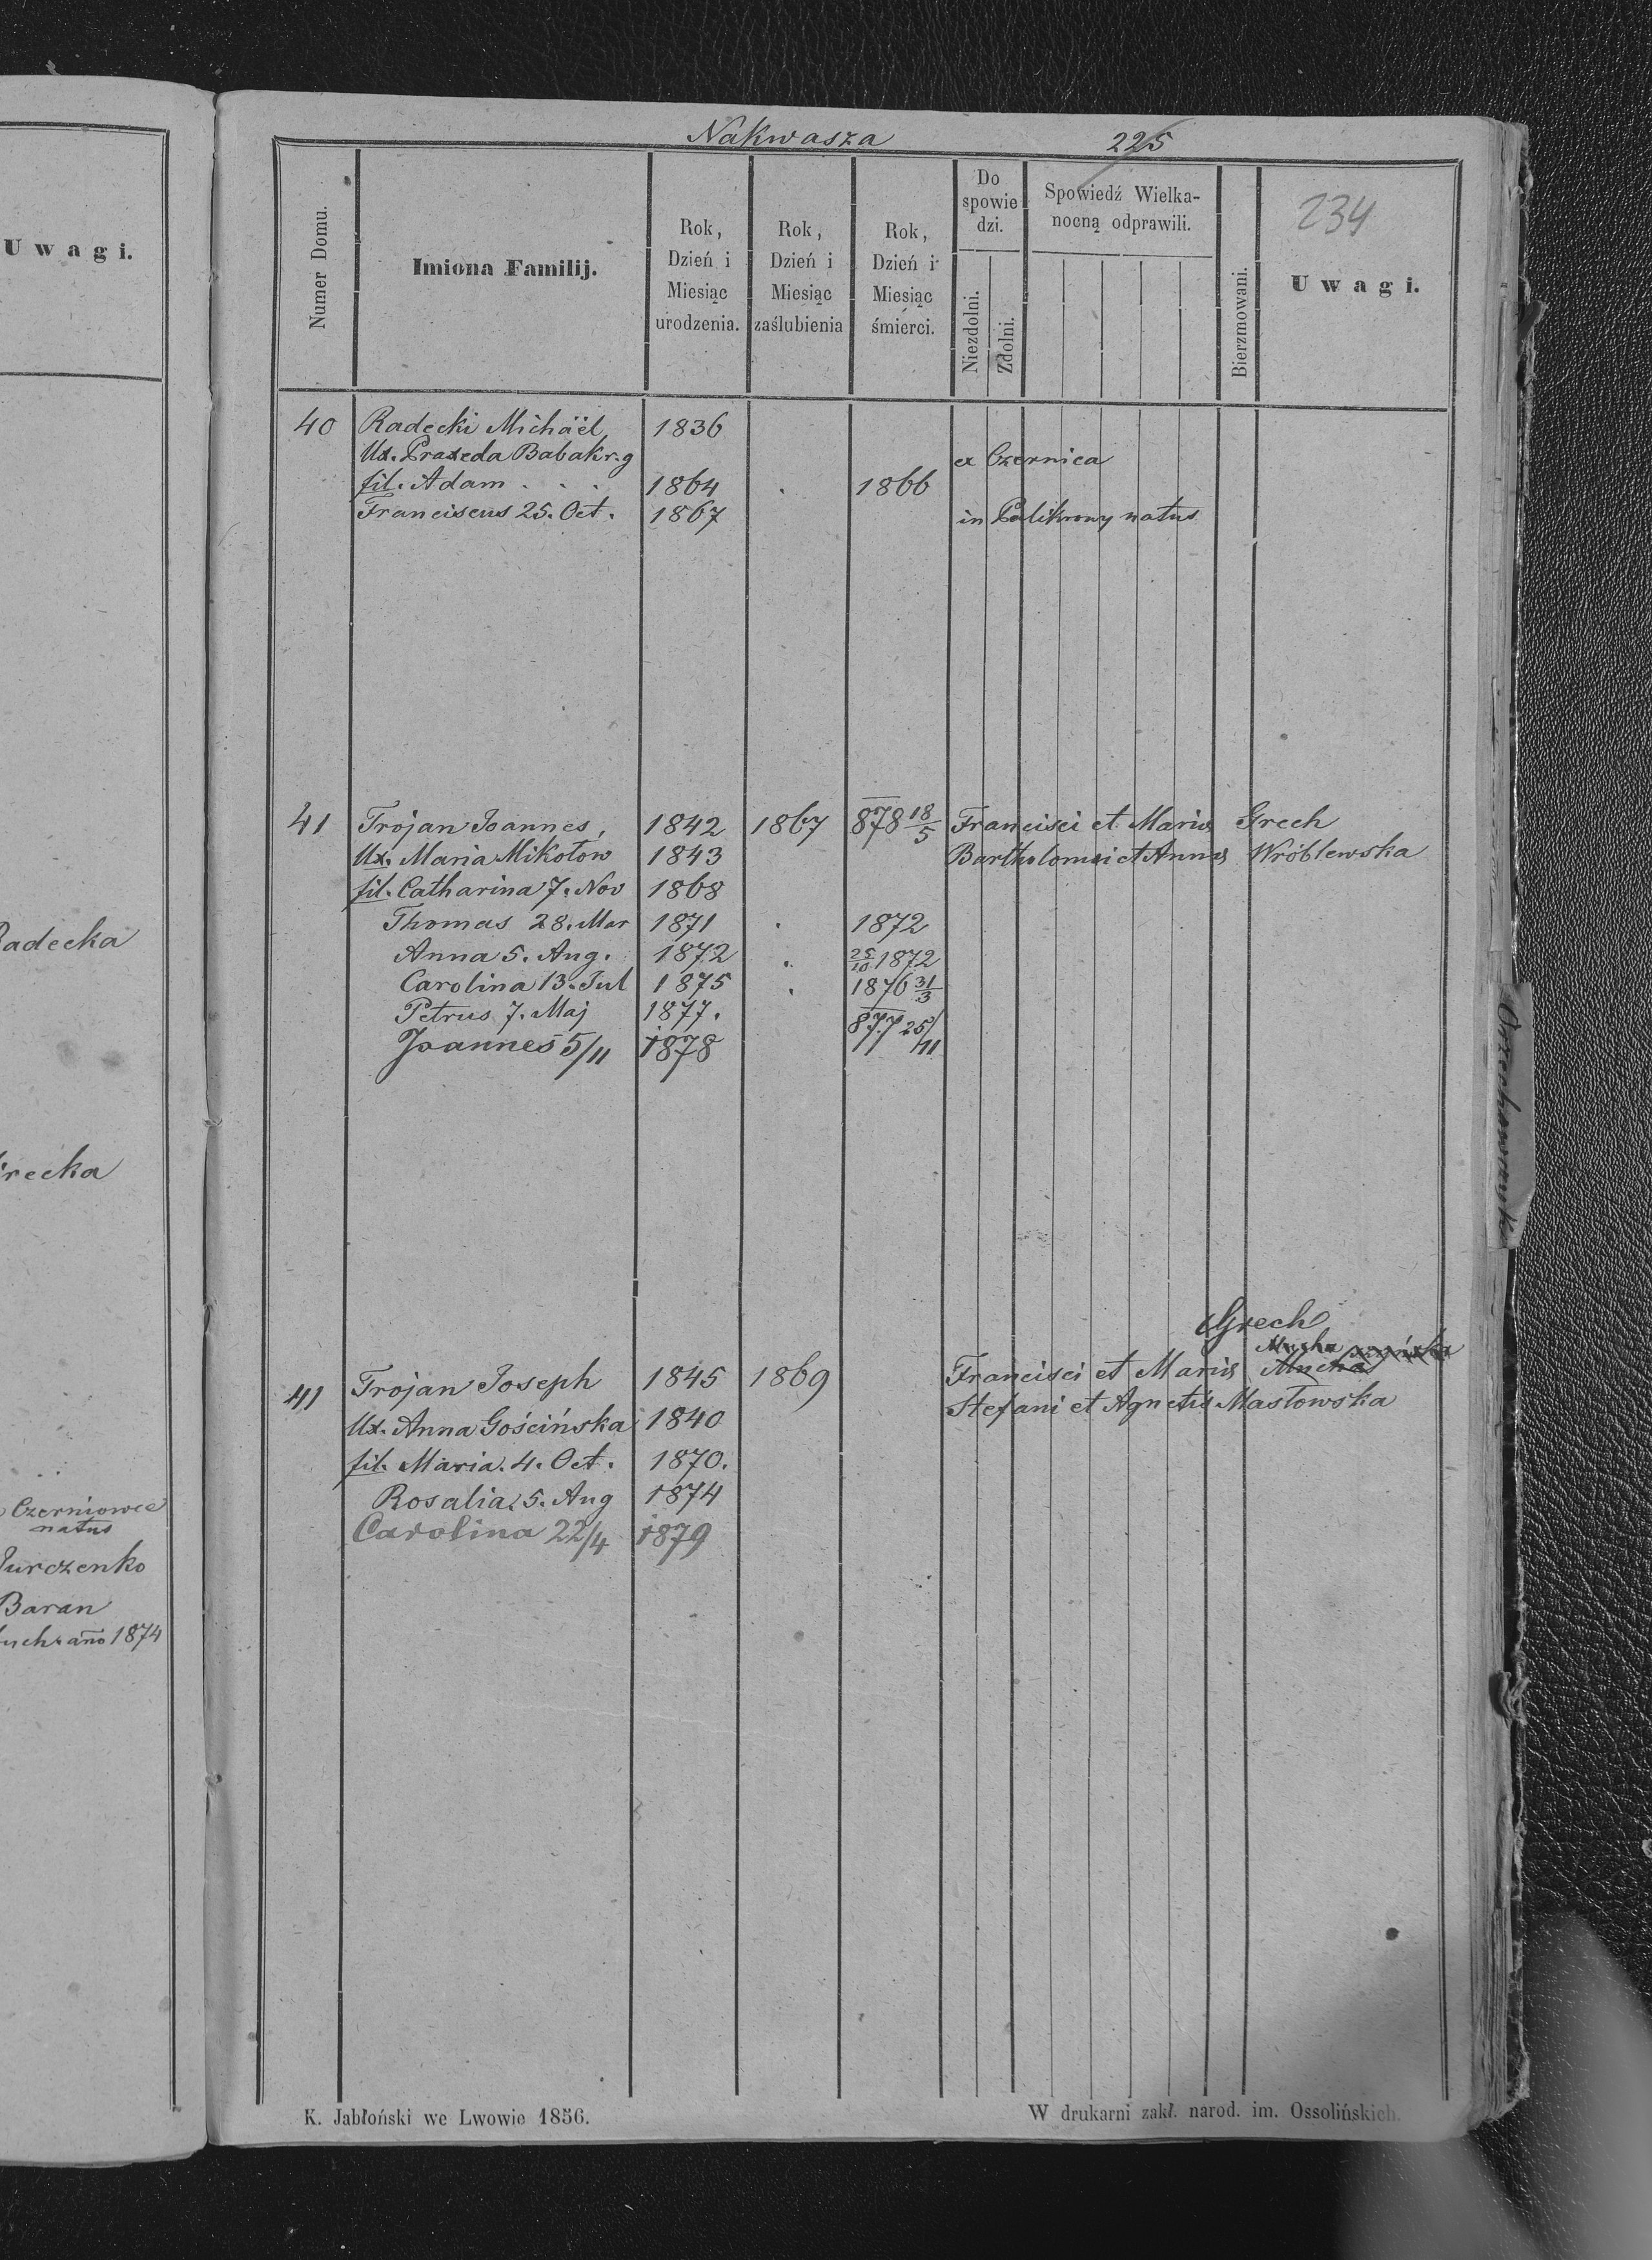 U w a g i.
Radecka
recka
Czerniowce
natus
Jurczenko
Baran
1874
Nakwasza 225
234
Numer Domu.
Imiona Familij.
Rok,
Dzień i
Miesiąc
urodzenia.
Rok,
Dzień i
Miesiąc
zaślubienia
Rok,
Dzień i
Miesiąc
śmierci.
Do
spowie
dzi.
Niezdolni.
Zdolni.
Spowiedź Wielka-
nocną odprawili.
Bierzmowani.
U w a g i.
40 Radecki Michäel 1836
Ux. Praxeda Babak r. g ex Czernica
fil. Adam . . . 1864 . 1866
Franciscus 25. Oct. 1867 in Palikrowy natus
41 Trojan Joannes, 1842 1867 878 18/5 Francisci et Mariæ Grech
Ux. Maria Mikołow 1843 Bartholomæi et Annæ Wróblewska
fil. Catharina 7. Nov 1868
Thomas 28. Mar 1871 . 1872
Anna 5. Aug. 1872 . 25/10 1872
Carolina 13. Jul 1875 . 1876 31/3
Petrus 7. Maj 1877. 877 25/11
Joannes 5/11 1878
Grech
Mucha
41 Trojan Joseph 1845 1869 Francisci et Mariæ Mucha
Ux. Anna Gościńska 1840 Stefani et Agnetis Masłowska
fil. Maria. 4. Oct. 1870.
Rosalia. 5. Aug 1874
Carolina 22/4 1879
K. Jabłoński we Lwowie 1856. W drukarni zakł. narod. im. Ossolińskich.